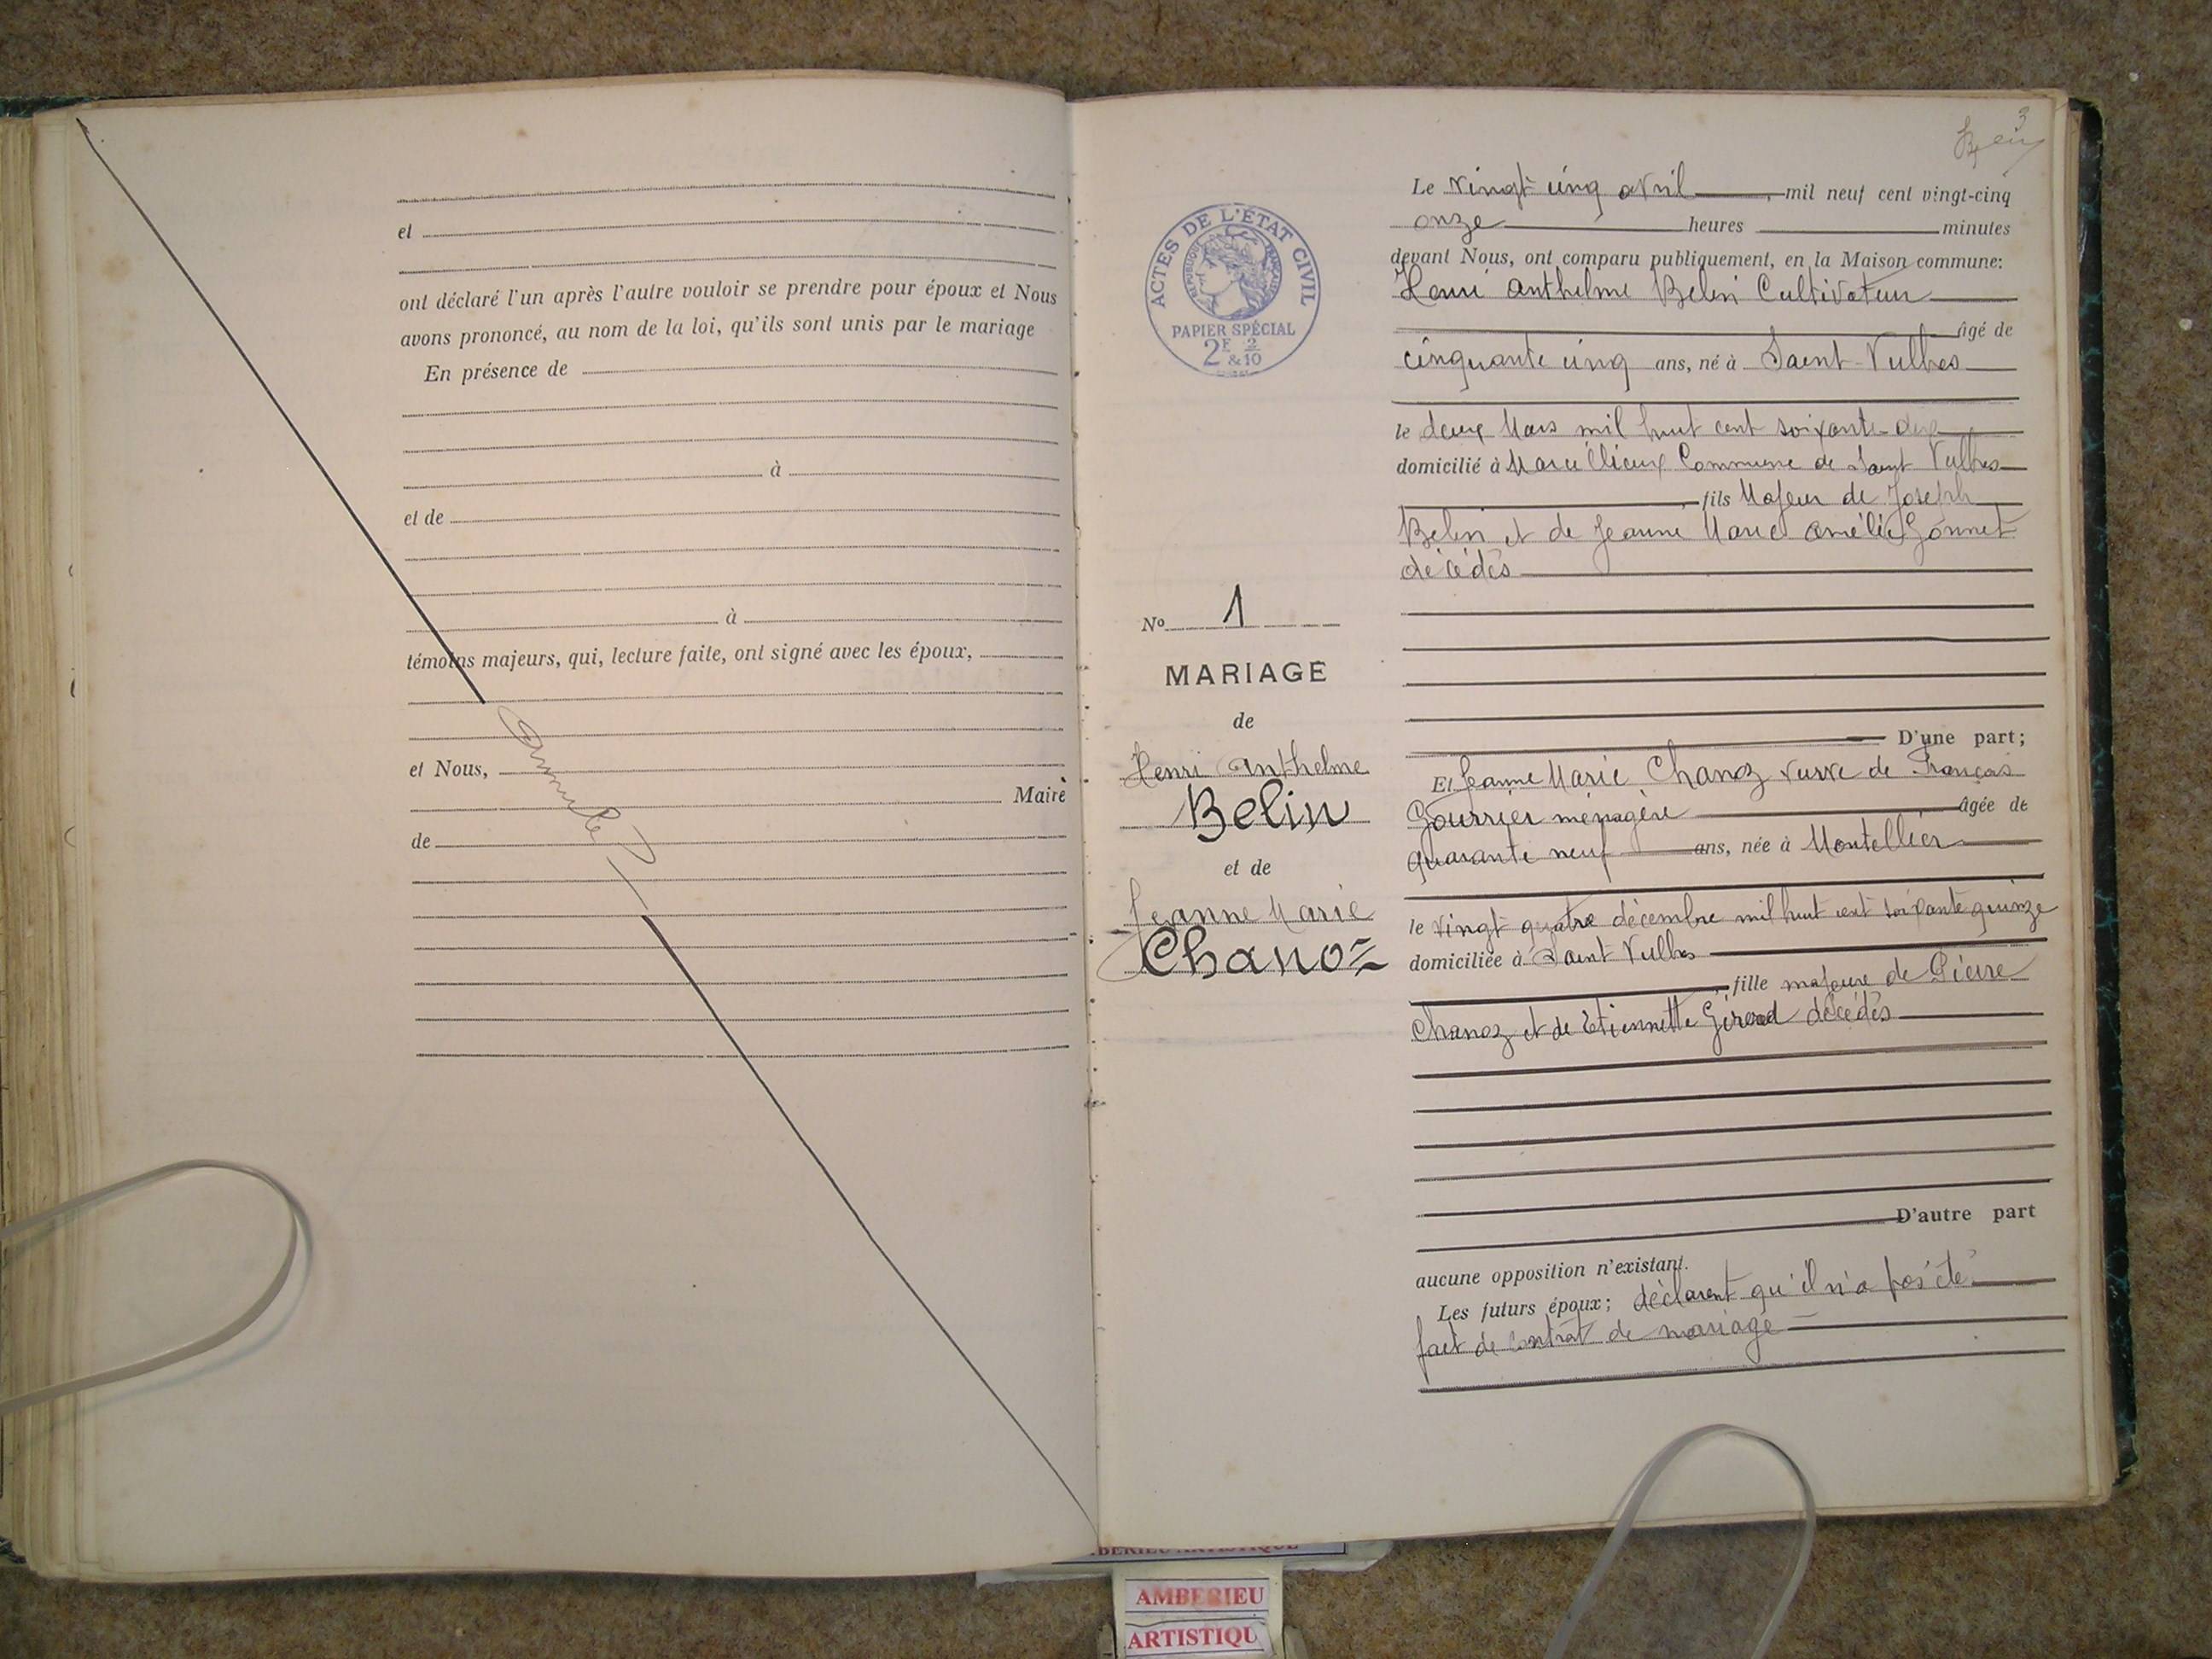 et
ont déclaré l'un après l'autre vouloir se prendre pour époux et Nous
avons prononcé, au nom de la loi, qu'ils sont unis par le mariage
En présence de
à
et de
à
témoins majeurs, qui, lecture faite, ont signé avec les époux,
et Nous,
Maire
de
3
ACTES DE L'ÉTAT CIVIL
RÉPUBLIQUE FRANÇAISE
PAPIER SPÉCIAL
2E 2
&10
No 1
MARIAGE
de
Henri Anthelme
Belin
et de
Jeanne Marie
Chanoz
Le vingt cinq avril mil neuf cent vingt-cinq
onze heures minutes
devant Nous, ont comparu publiquement, en la Maison commune:
Henri Anthelme Belin Cultivateur
âgé de
cinquante cinq ans, né à Saint-Vulbas
le deux Mars mil huit cent soixante-dix
domicilié à Marcillieux Commune de Saint Vulbas
fils Majeur de Joseph
Belin et de Jeanne Marie Amélie Gonnet
décédés
D'une part;
Et Jeanne Marie Chanoz veuve de François
Gourrier ménagère âgée de
quarante neuf ans, née à Montellier
le vingt quatre décembre mil huit cent soixante quinze
domiciliée à Saint Vulbas
fille majeure de Pierre
Chanoz et de Etiennette Giroud décédés
D'autre part
aucune opposition n'existant.
Les futurs époux; déclarent qu'il n'a pas été
fait de contrat de mariage
AMBERIEU ARTISTIQUE
AMBERIEU
ARTISTIQU